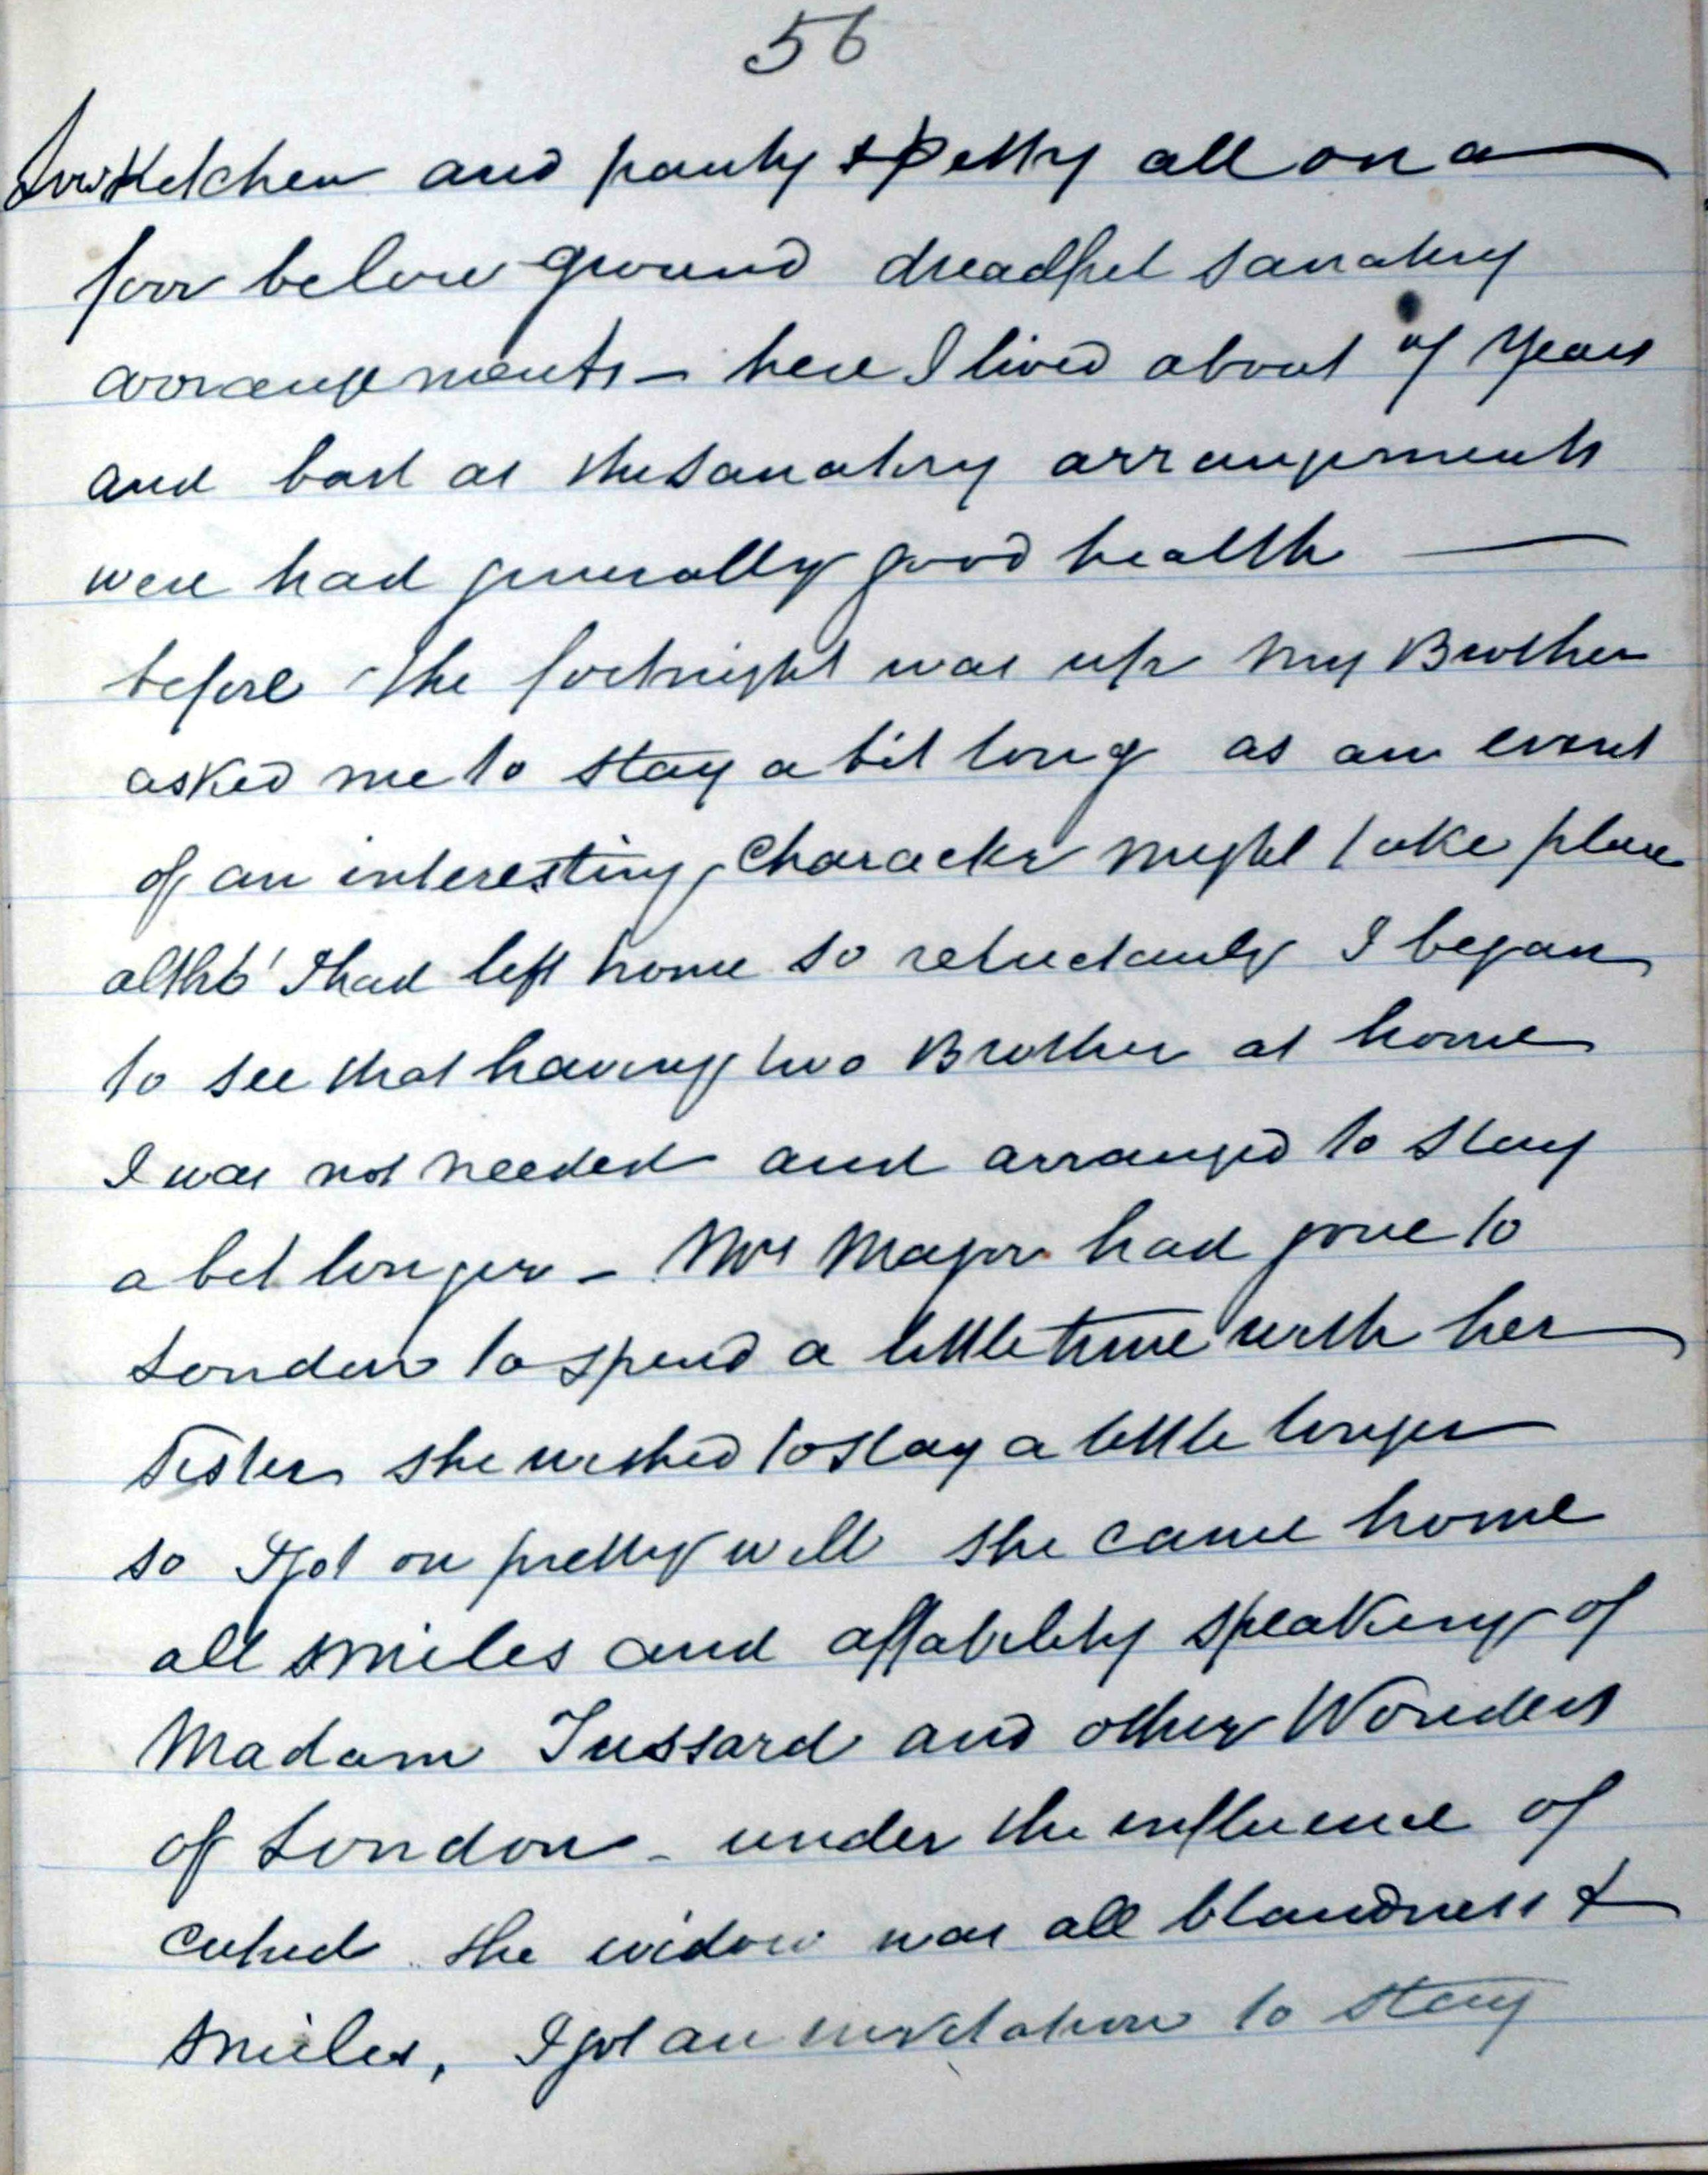 56
Low Kitchen and panty & petty all on a
foor below ground dreadful sanatery
arrangements – here I lived about of years
and bad as the sanatery arrangements
were had generally good health —
before the fortnight was up my Brother
asked me to stay a bit long as an event
of an interesting character might take place
altho' I had left home so reluctantly I began
to see that having two Brother at home
I was not needed and arranged to stay
a bit longer – Mrs Major had gone to
London to spend a little time with her
Sister she wished to stay a little longer
so I got on pretty well she came home
all smiles and affability speaking of
Madam Tussard and other Wonders
of London – under the influence of
the widow was all blandness &
smiles, I got an invitation to stay